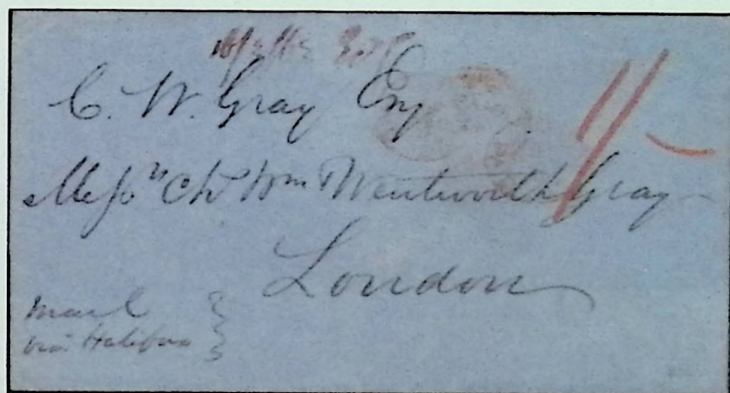 C. W. Gray Esq
Mess rs Ch Wm Wentworth Gray
London
Mail
via Halifax
1/-